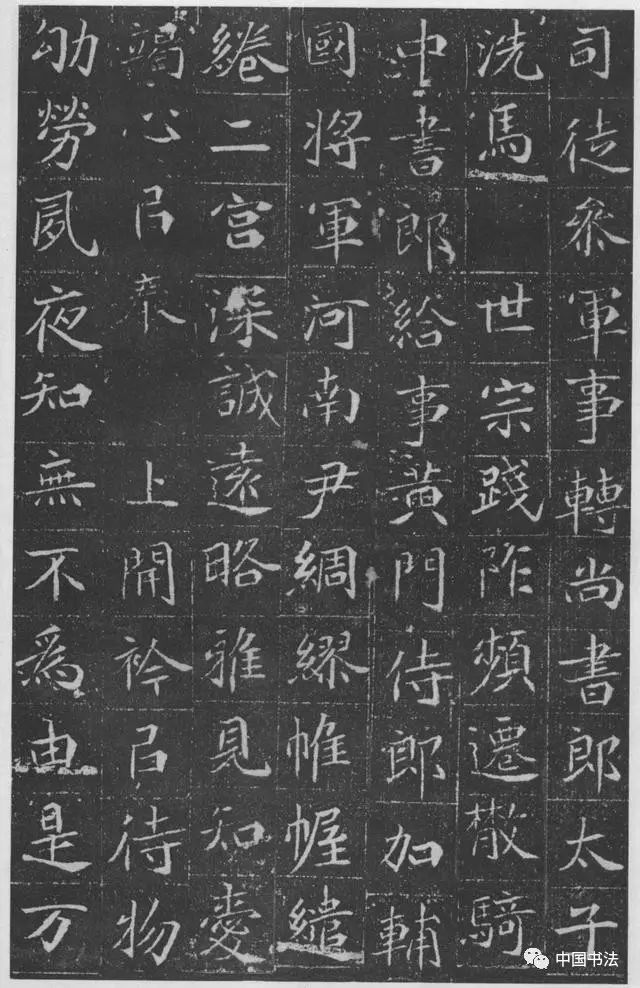 司徒叅軍事轉尚書郎太子
洗馬　世宗踐阼頻遷散騎
中書郎給事黃門侍郎加輔
國將軍河南尹綢繆帷幄繾
綣二宮深誠遠略雅見知愛
竭心㠯奉　上開衿㠯待物
劬勞夙夜知無不爲由是万
中国书法